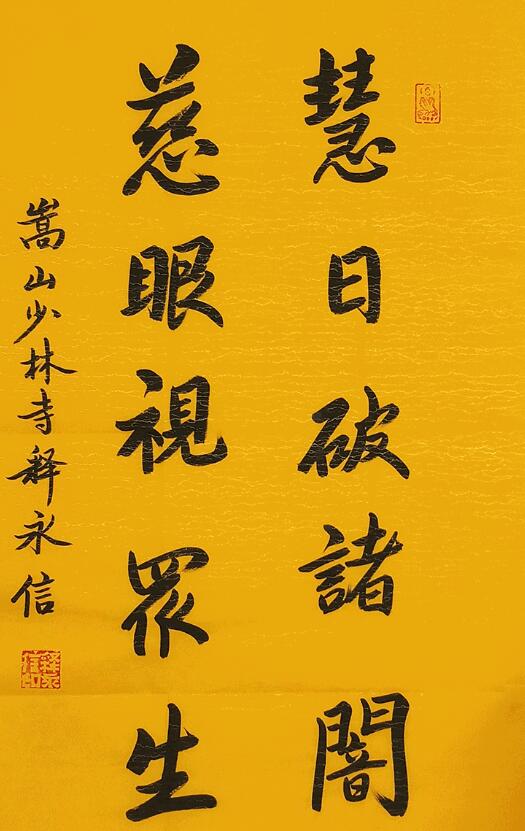 慧日破諸闇
慈眼視眾生
嵩山少林寺釋永信
釋永信印